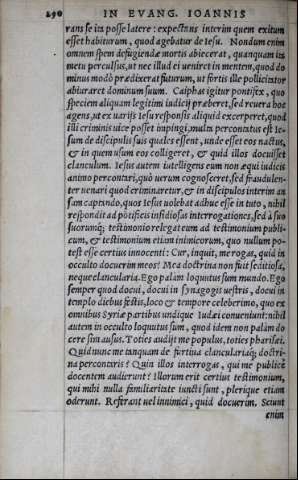 290 IN EVANG. IOANNIS
rans se ita posse latere: expectans interim quem exitum
esset habiturum, quod agebatur de Iesu. Nondum enim
omnem spem defugiendæ mortis abiecerat, quanquam ita
metu perculsus, ut nec illud ei ueniret in mentem, quod do
minus modò prædixerat futurum, ut fortis ille pollicitator
abiuraret dominum suum. Caiphas igitur pontifex, quo
speciem aliquam legitimi iudicij præberet, sed reuera hoc
agens, ut ex uarijs Iesu responsis aliquid excerperet, quod
illi criminis uice posset impingi, multa percontatus est Ie-
sum de discipulis suis quales essent, unde esset eos nactus,
& in quem usum eos colligeret, & quid illos docuisset
clanculum. Iesus autem intelligens eum non æqui iudicis
animo percontari, quò uerum cognosceret, sed fraudulen-
ter uenari quod criminaretur, & in discipulos interim an
sam captando, quos Iesus uolebat adhuc esse in tuto, nihil
respondit ad pōtificis insidiosas interrogationes, sed à suo
suorumq; testimonio relegat eum ad testimonium publi-
cum, & testimonium etiam inimicorum, quo nullum po-
test esse certius innocenti: Cur, inquit, me rogas, quid in
occulto docuerim meos? Mea doctrina non fuit seditiosa,
neque clancularia. Ego palam loquutus sum mundo. Ego
semper quod docui, docui in synagogis uestris, docui in
templo diebus festis, loco & tempore celeberimo, quo ex
omnibus Syriæ partibus undique Iudæi conueniunt: nihil
autem in occulto loquutus sum, quod idem non palàm do
cere sim ausus. Toties audijt me populus, toties pharisæi.
Quid nunc me tanquam de furtiua clanculariaq; doctri-
na percontaris? Quin illos interrogas, qui me publicè
docentem audierunt? Illorum erit certius testimonium,
qui mihi nulla familiaritate iuncti sunt, plerique etiam
oderunt. Referant uel inimici, quid docuerim. Sciunt
enim